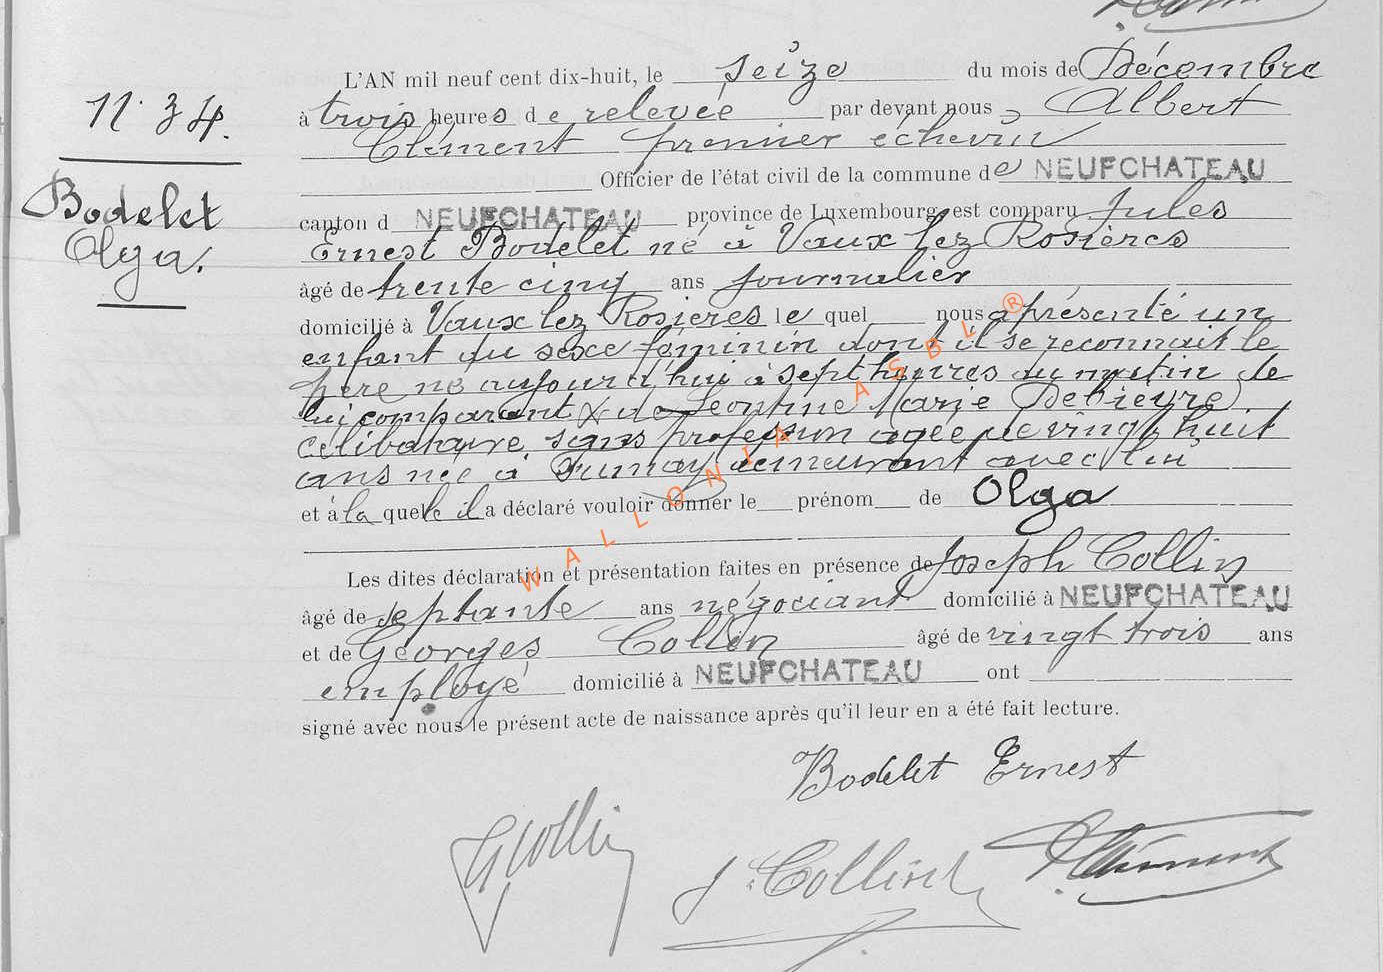 L'AN mil neuf cent dix-huit, le seize du mois de Décembre
N° 34.
à trois heures de relevée par devant nous Albert
Clément premier échevin
Officier de l'état civil de la commune de NEUFCHATEAU
Bodelet
Olga.
canton d NEUFCHATEAU province de Luxembourg, est comparu Jules
Ernest Bodelet né à Vaux lez Rosières
âgé de trente cinq ans journalier
domicilié à Vaux lez Rosieres le quel nous a présenté un
enfant du sexe féminin dont il se reconnait le
père né aujourd'hui à sept heures du matin de
lui comparant & de Léontine Marie Delièvre
célibataire, sans profession agée de vingt huit
ans née à Fumay demeurant avec lui
et à la quelle il a déclaré vouloir donner le prénom de Olga
Les dites déclaration et présentation faites en présence de Joseph Collin
âgé de septante ans négociant domicilié à NEUFCHATEAU
et de Georges Collin âgé de vingt trois ans
employé domicilié à NEUFCHATEAU ont
signé avec nous le présent acte de naissance après qu'il leur en a été fait lecture.
Bodelet Ernest
G Collin
J. Collin
Clément
WALLONIA ASBL ®